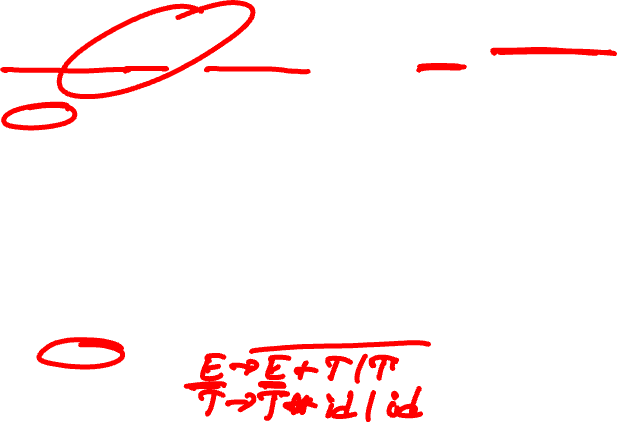 E → E + T / T
T → T * id / id